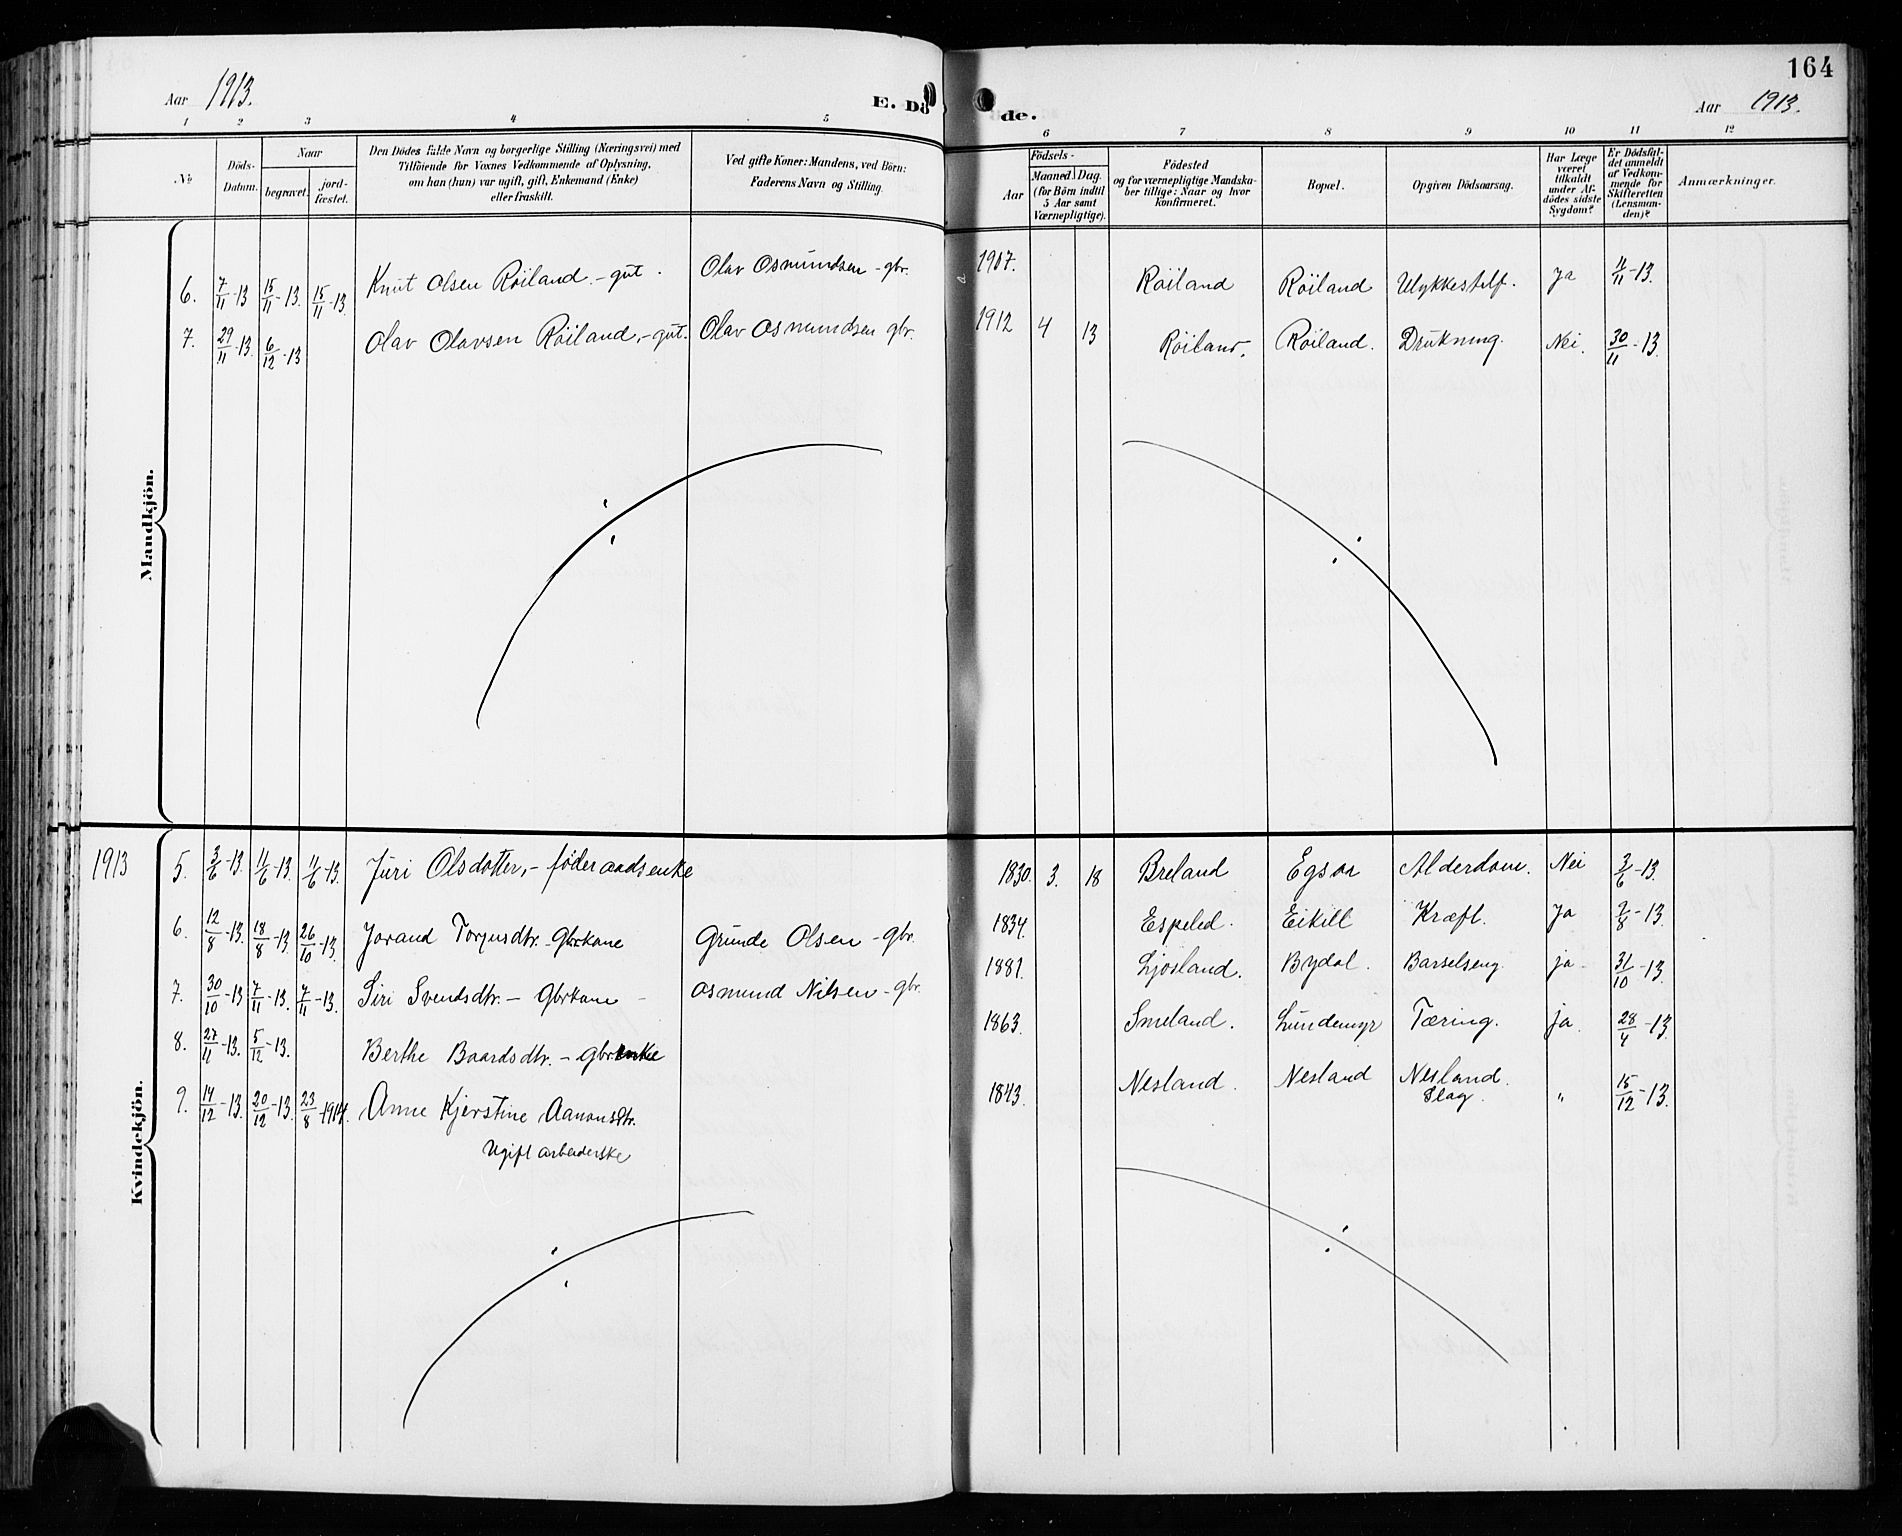 164
Aar 1913. E. Dö de. Aar 1913.
1 2 3 4 5 6 7 8 9 10 11 12
№
Döds-Datum.
Naar
begravet.
jord-fæstet.
Den Dödes fulde Navn og borgerlige Stilling (Næringsvei) med
Tilföiende for Voxnes Vedkommende af Oplysning,
om han (hun) var ugift, gift, Enkemand (Enke)
eller fraskilt.
Ved gifte Koner: Mandens, ved Börn:
Faderens Navn og Stilling.
Födsels-
Aar
Maaned
Dag.
(for Börn indtil
5 Aar samt
Værnepligtige).
Födested
og for værnepligtige Mandska-
ber tillige: Naar og hvor
konfirmeret.
Bopæl.
Opgiven Dödsaarsag.
Har Læge
været
tilkaldt
under Af-
dödes sidste
Sygdom?
Er Dödsfal-
det anmeldt
af Vedkom-
mende for
Skifteretten
(Lensman-
den)?
Anmærkninger.
Mandkjön.
6. 7/11-13 15/11-13. 15/11-13. Knut Olsen Röiland - gut. Olav Osmundsen - gbr. 1907. Röiland Röiland Ulykkestilf. Ja 11/11-13.
7. 29/11-13. 6/12-13 Olav Olavsen Röiland, - gut. Olav Osmundsen gbr. 1912 4 13 Röiland. Röiland. Drukning. Nei. 30/11-13.
Kvindekjön.
1913 5. 3/6-13. 11/6-13. 11/6-13. Juri Olsdotter, - föderaadsenke 1830. 3. 18 Breland Egsaa Alderdom. Nei 3/6-13.
6. 12/8-13. 18/8-13. 26/10-13. Jorand Torjusdtr. - Gbrkone Grunde Olsen - gbr. 1834. Espeled. Eikill Kræft. Ja 2/8-13.
7. 30/10-13 7/11-13. 7/11-13. Siri Svendsdtr. - Gbrkone - Osmund Nilsen - gbr. 1881. Ljosland. Bydal. Barselseng ja. 31/10-13.
8. 27/11-13. 5/12-13. Berthe Baardsdtr. - gbrenke 1863. Smeland. Lundemyr Tæring. ja. 28/4-13.
9. 14/12-13. 20/12-13. 23/8-1914. Anne Kjerstine Aanonsdtr. 1843. Nesland. Nesland Nesland. " 15/12-13.
Slag.
Ugift arbeiderske